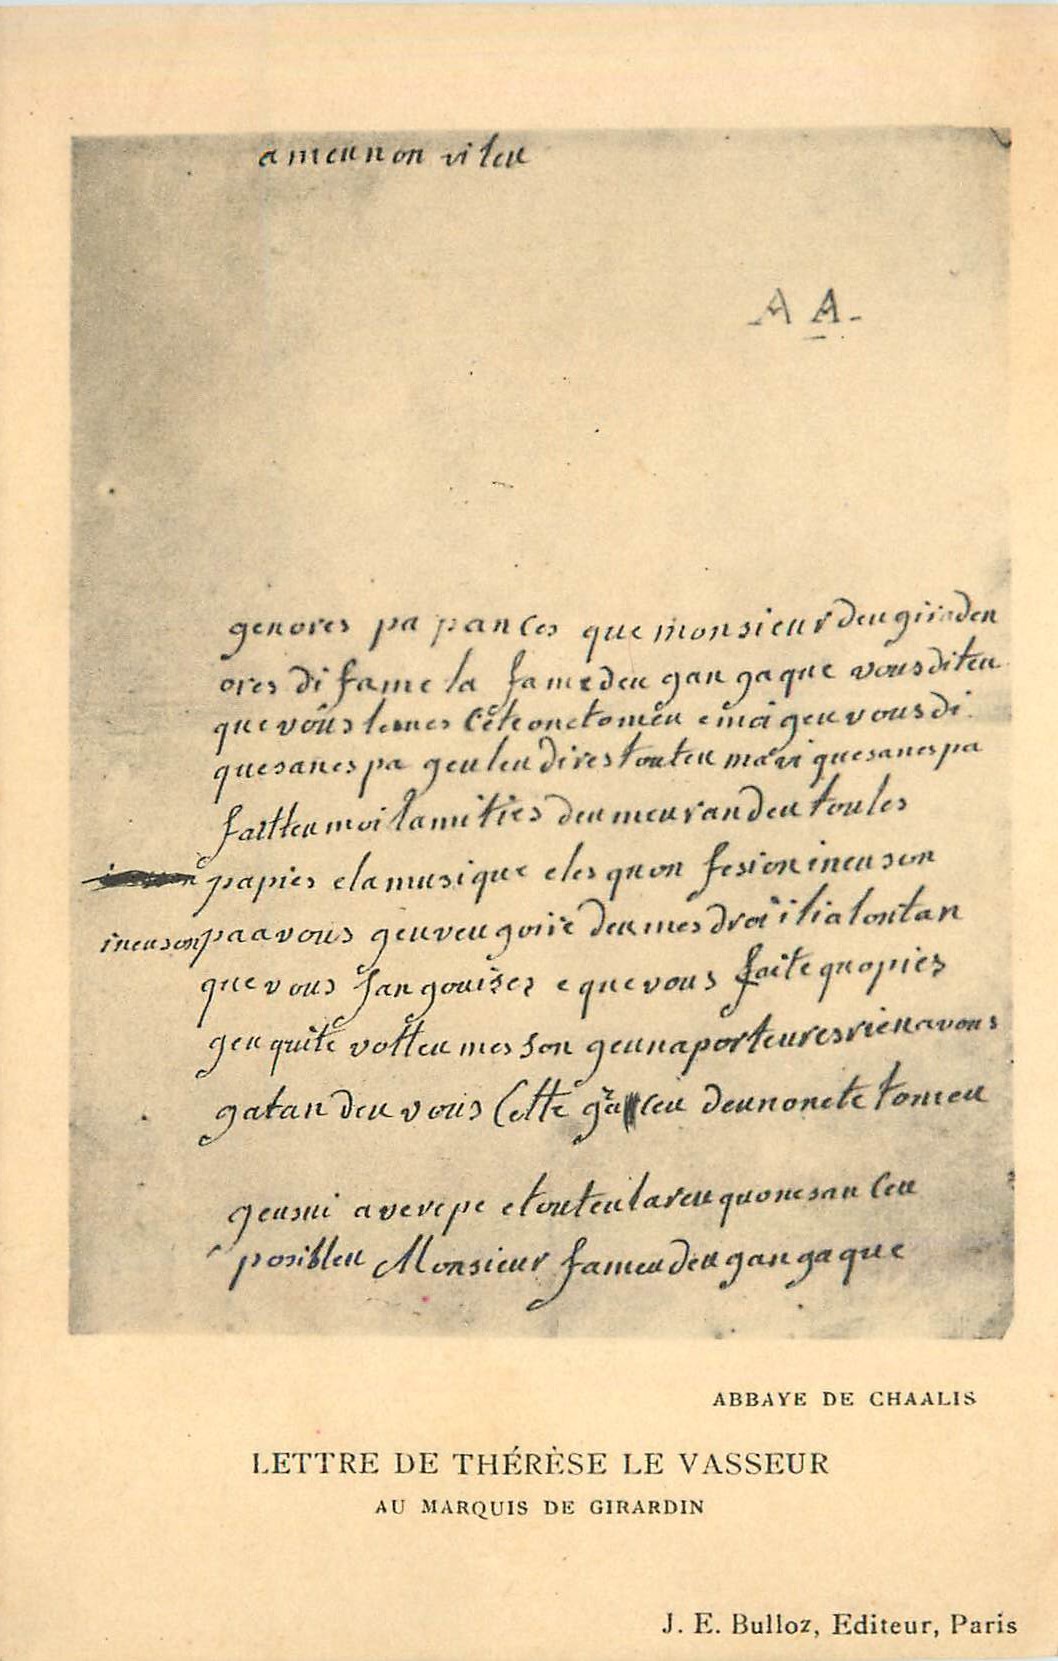 ameunon vileu
A A-
genores pa pances que monsieur deu giraden
ores di fame la fame deu gan gaque vous diteu
que vous lemes l'ete onetomeu e moi geu vous di
quesanespa geuleu dires touteu mavi quesanespa
faitteu moi lamities deu meu randeu toules
papies elamusique eles quon fesion ineuson
ineusonpaavous geuveu goiie deu mes droi ilialontan
que vous fan gouises e que vous faite quopies
geu quite votteu meson geunaporteuresrienavous
gatan deu vous Cette graceu deunonete tomeu
geusui averepe etouteulareuquonesan Ceu
posibleu Monsieur fameu deu gangaque
ABBAYE DE CHAALIS
LETTRE DE THÉRÈSE LE VASSEUR
AU MARQUIS DE GIRARDIN
J. E. Bulloz, Editeur, Paris